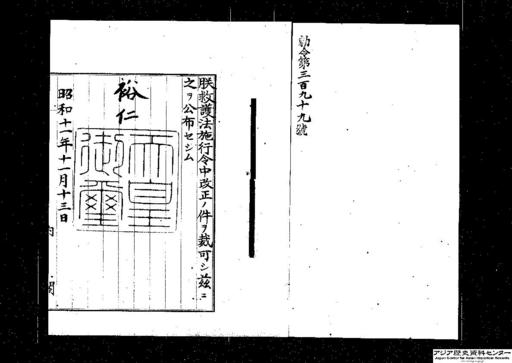 勅令第三百九十九號
朕救護法施行令中改正ノ件ヲ裁可シ茲ニ
之ヲ公布セシム
裕仁
天皇
御璽
昭和十一年十一月十三日
内閣
アジア歴史資料センター
Japan Center for Asian Historical Records